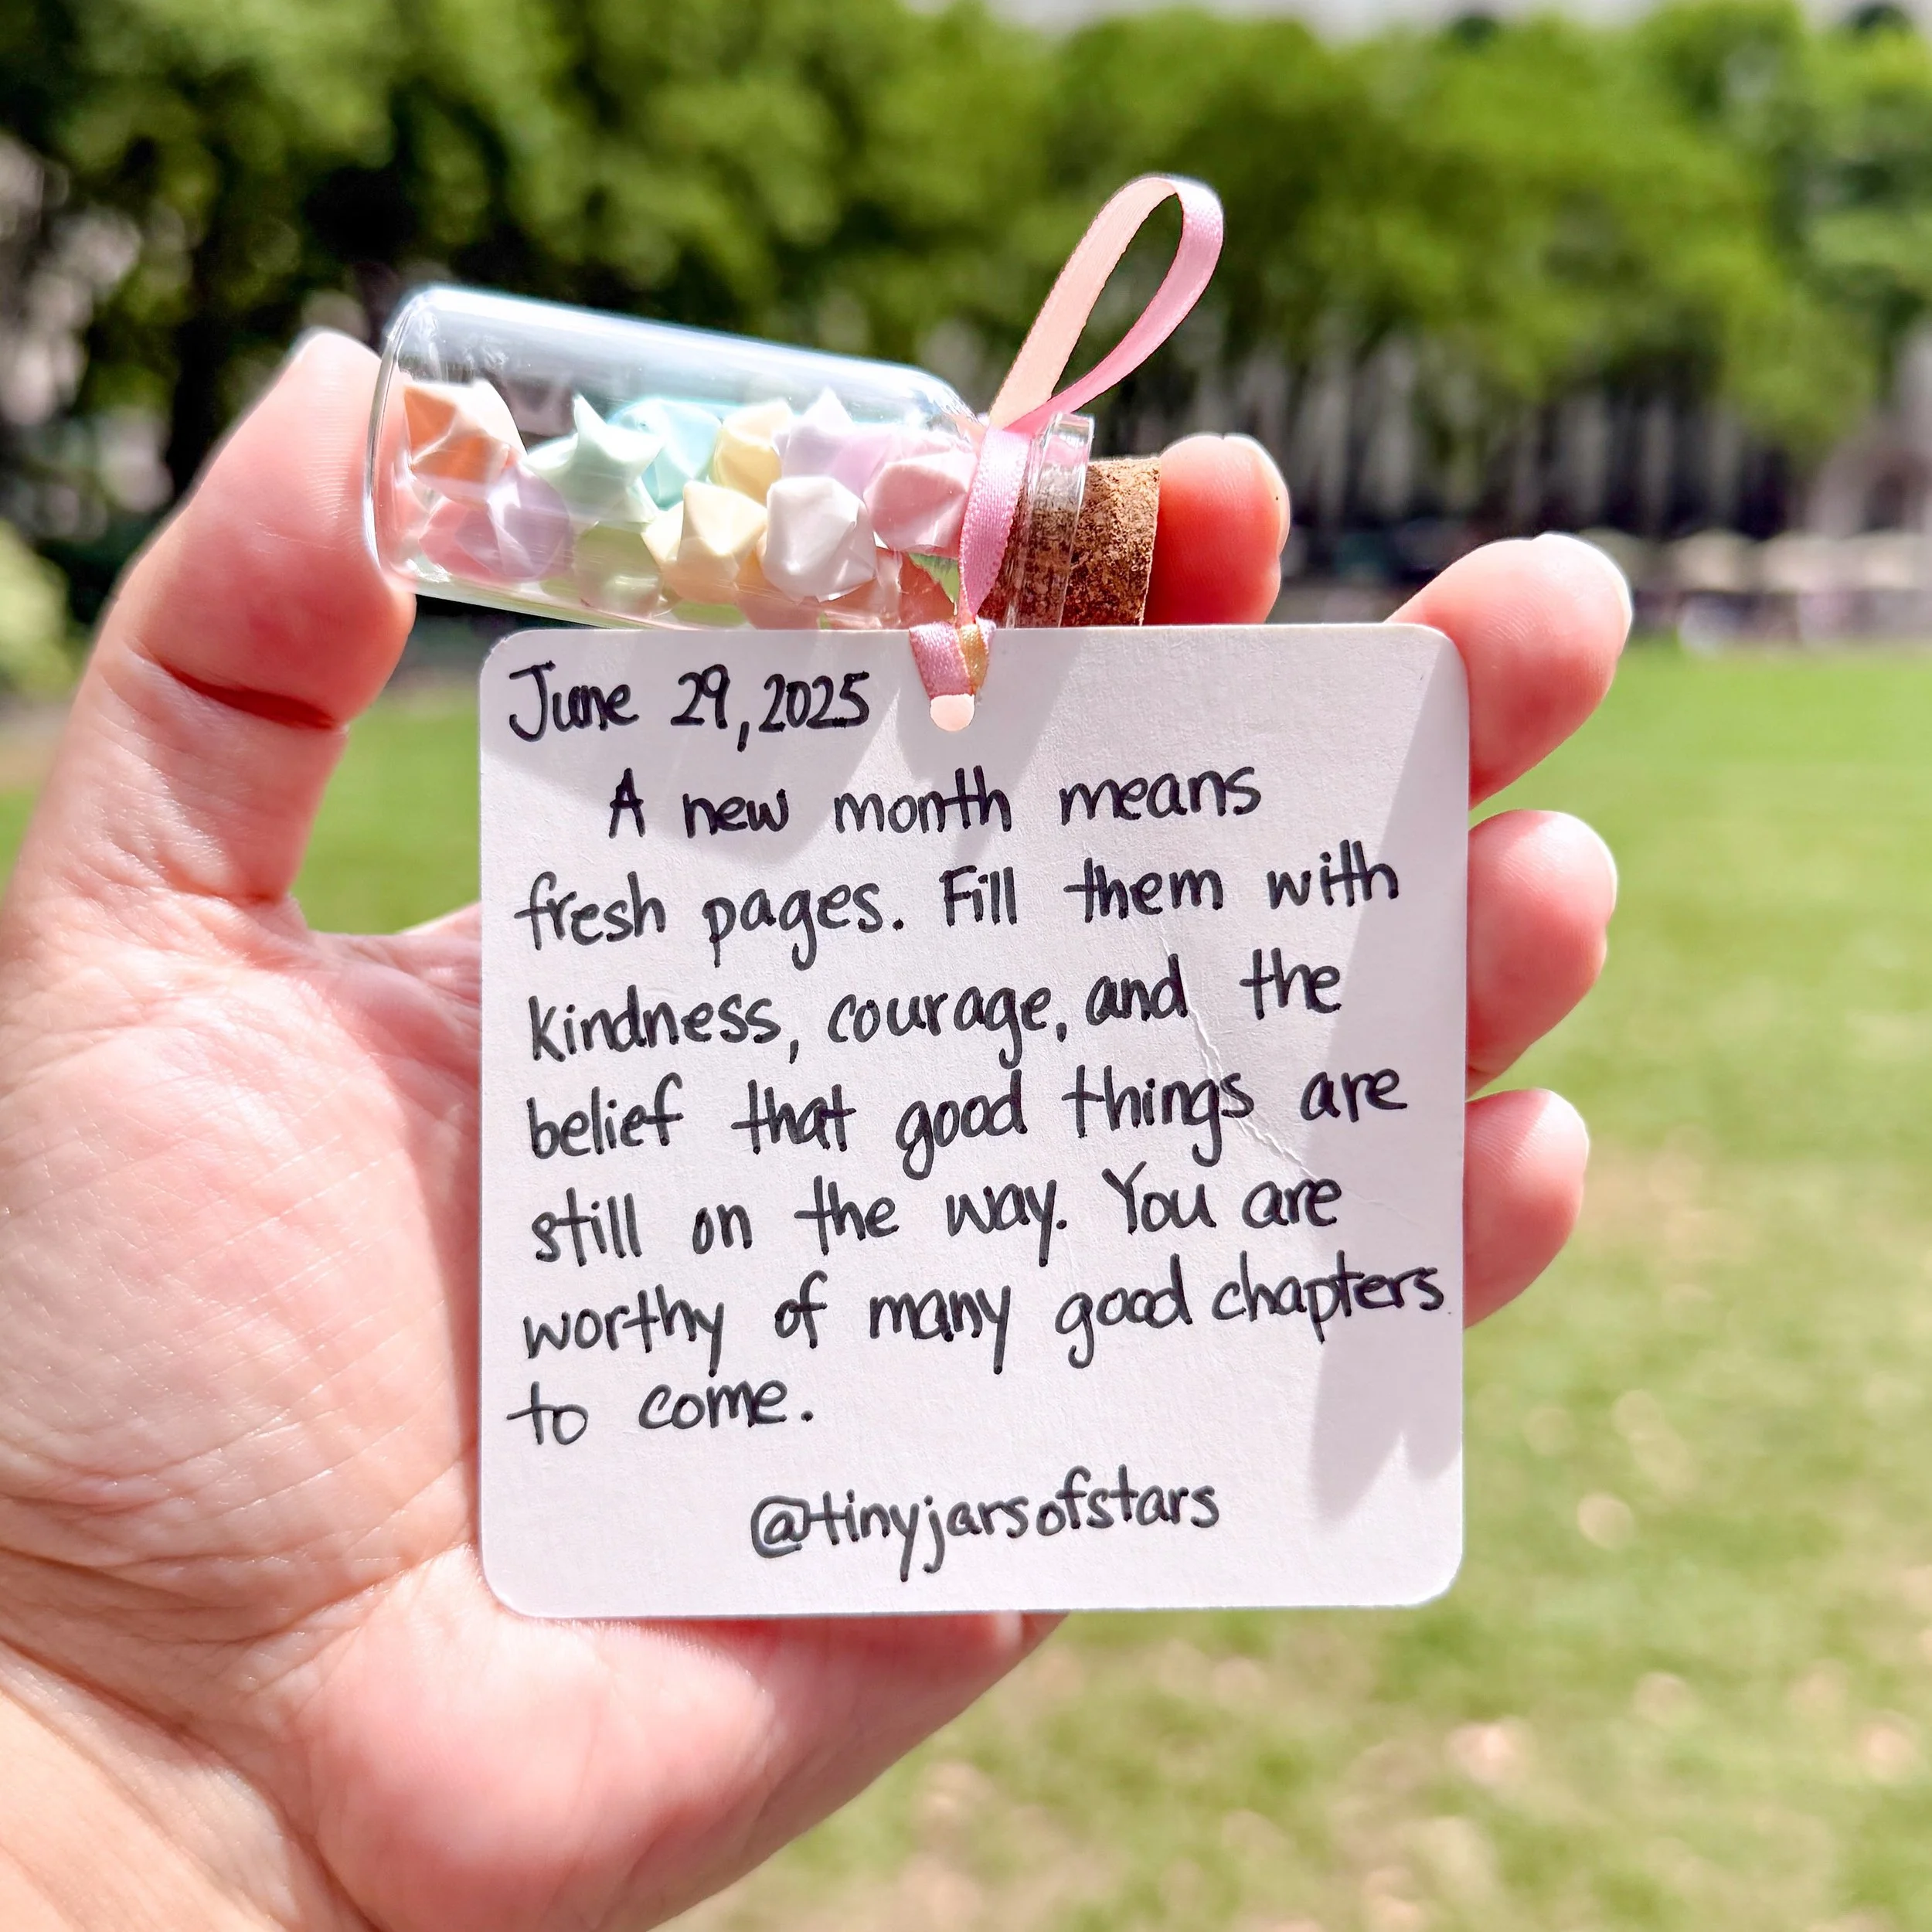 June 29, 2025
A new month means
fresh pages. Fill them with
kindness, courage, and the
belief that good things are
still on the way. You are
worthy of many good chapters
to come.
@tinyjarsofstars